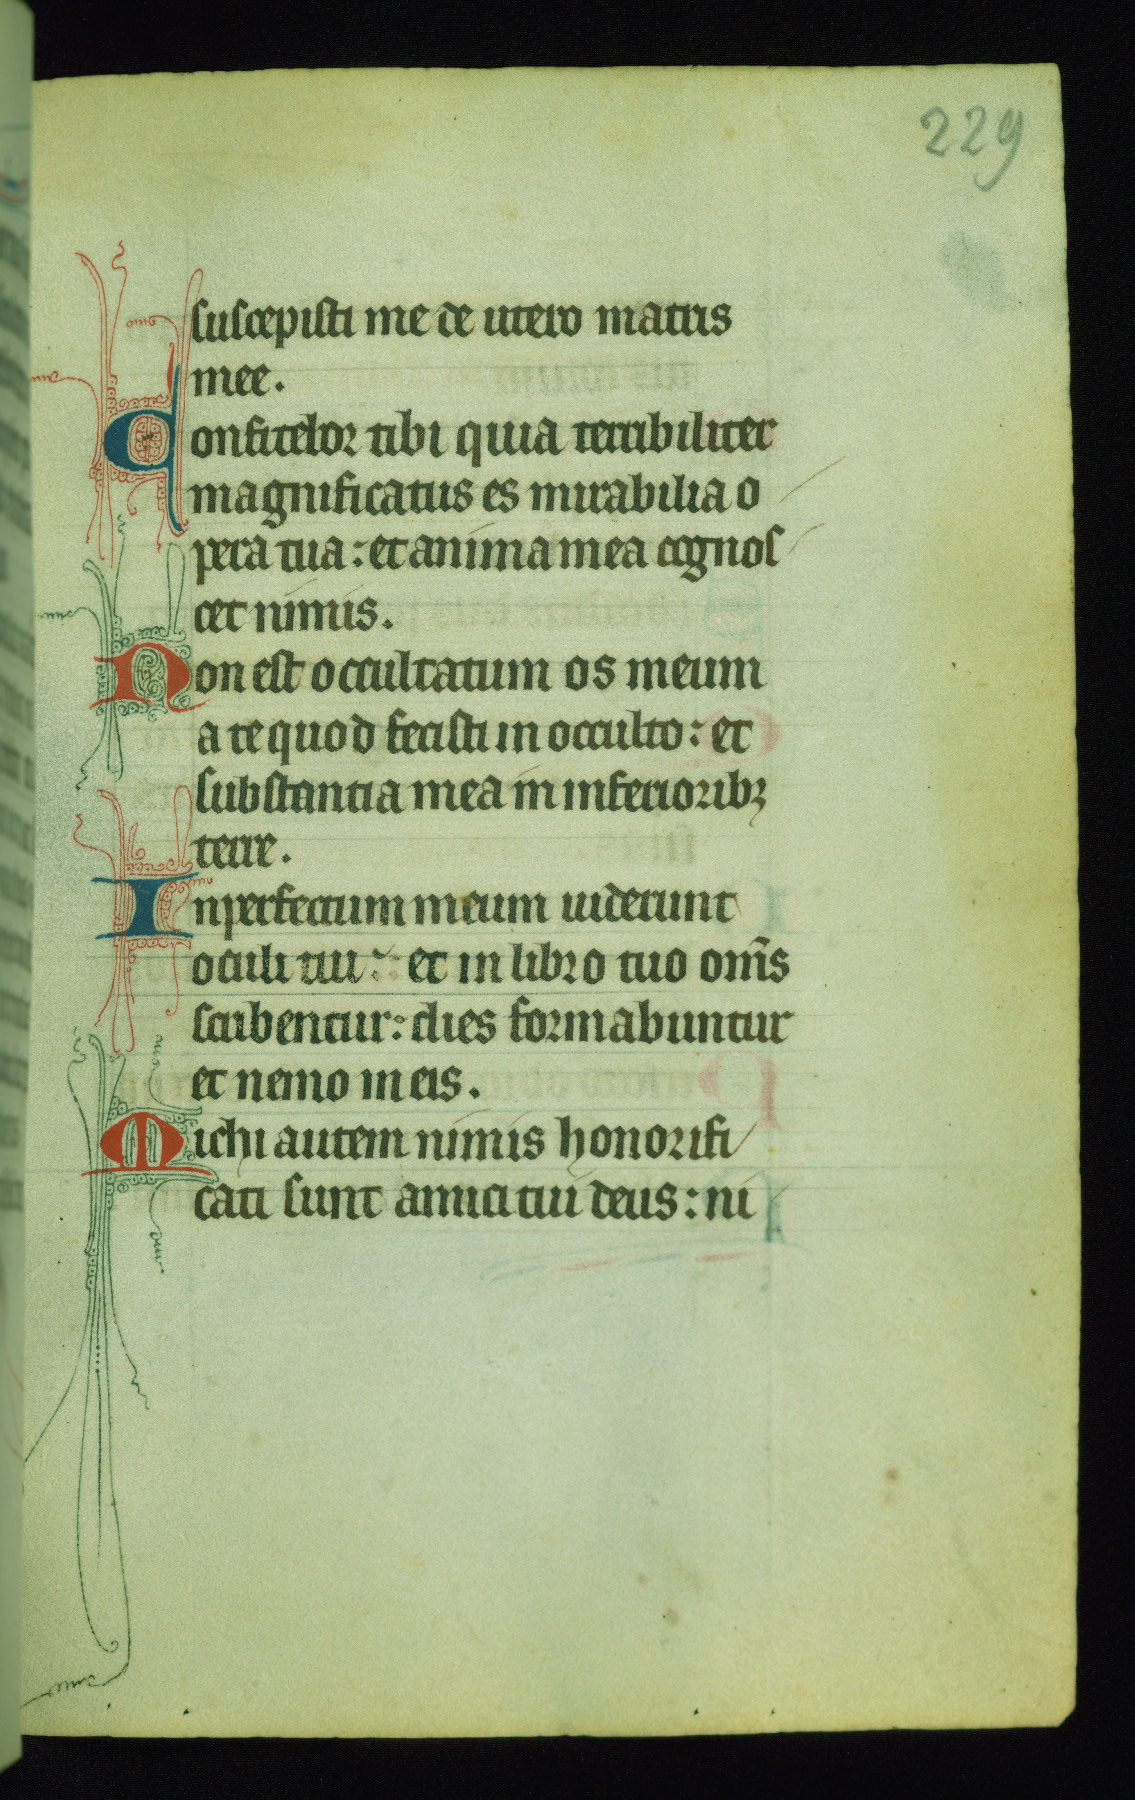 229
suscepisti me de utero matris
mee.
Confitebor tibi quia terribiliter
magnificatus es mirabilia o
pera tua: et anima mea cognos
cet nimis.
Non est occultatum os meum
a te quod fecisti in occulto: et
substantia mea in inferioribꝫ
terre.
Inperfectum meum uiderunt
oculi tui: et in libro tuo om̄s
scribentur: dies formabuntur
et nemo in eis.
Michi autem nimis honorifi
cati sunt amici tui deus: ni